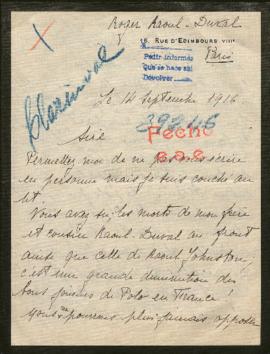 Roger Raoul-Duval
15, RUE D'EDIMBOURG VIIIe
Pedir informes
Paris
Que se hace así
Devolver
Le 14 Septembre 1916
39246
Sire
Fecho
Permettez moi de ne pas vous écrire
en personne mais je suis couché au
lit
Vous avez su les morts de mon frère
et cousin Raoul-Duval au front
ainsi que celle de Raoul Johnston,
c'est une grande diminution des
bons joueurs de Polo en France!
nous ne pourrons plus jamais